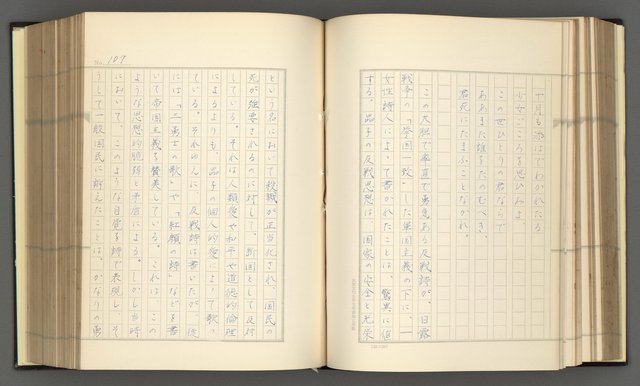 十月も添はでわかれたる
少女ごころを思ひみよ
この世ひとりの君ならで
ああまた誰をたのむべき、
君死にたまふことなかれ。
この大胆で率直で勇気ある反戦詩が、日露
戦争の「挙国一致」した軍国主義の下に、一
女性詩人によって書かれたことは、驚異に値
する。晶子の反戦思想は「国家の安全と光栄
No. 107
という名において殺戮が正当化され、国民の
死が強要されるのに対して、断固として反対
している。それは人類愛や和平や道徳的倫理
によるよりも、晶子の個人的愛によって歌っ
ている。それゆえに、反戦詩は書いたが、後
には「三勇士の歌」や「紅顔の詩」などを書
いて帝国主義を賛美している。これはこの
ような思想的脆弱と矛盾による。しかし当時
において、このような自覚を詩で表現し、そ
うして一般国民に訴えたことは、かなりの勇